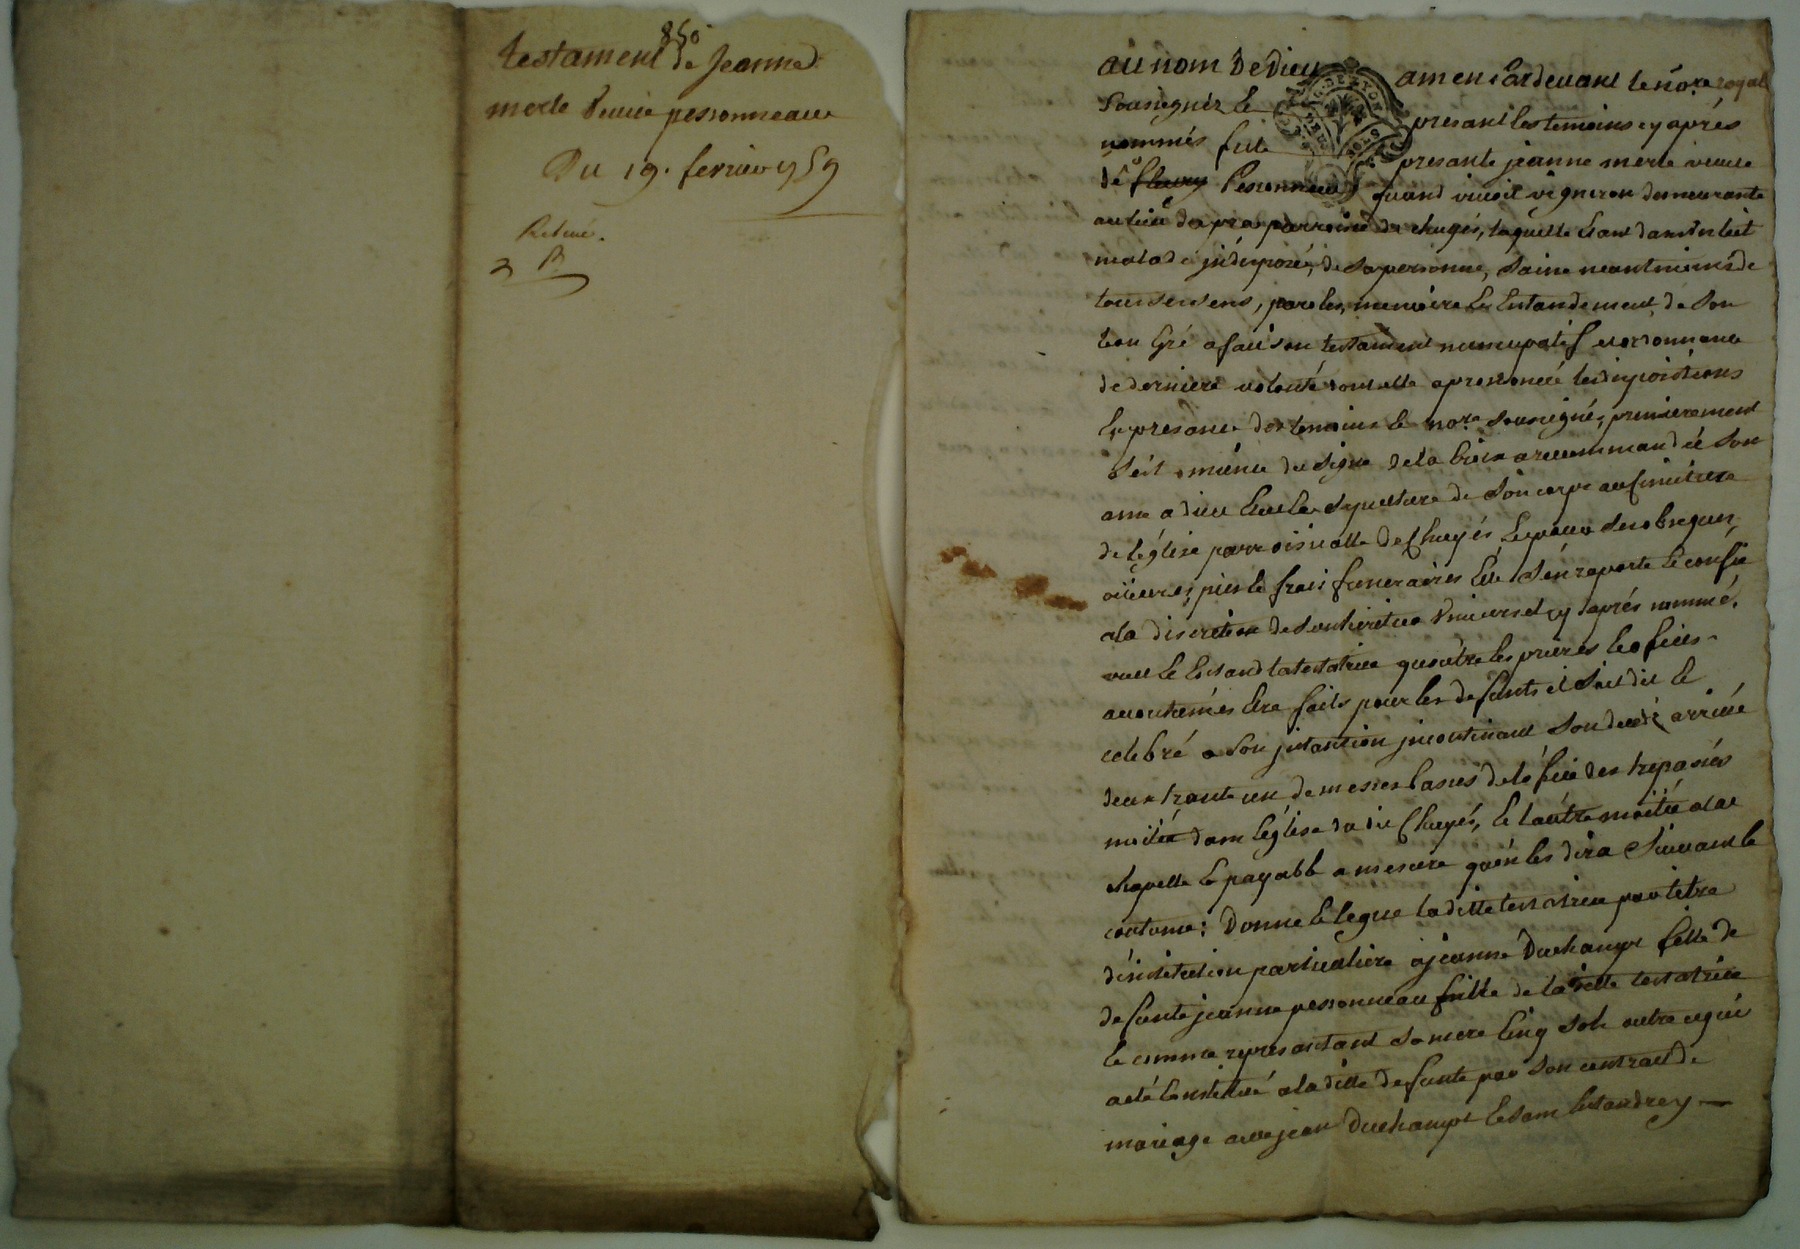 850
testament de Jeanne
merle veuve pessonneaux
Du 19. fevrier 1759
Retenu.
au nom De Dieu amen : Pardevant le nore royal
Soussignéz le presant les temoins cy aprés
nommés fut presante jeanne merle veuve
dé fleury Pessonneau quand vivoit vigneron demeurante
au lieu de paroisse de chuyés, laquelle Etant dans un lict
malade jndisposée, de sa personne, saine neantmoins de
tous ses sens, paroles, memoire Et Entandement, de son
bon Gré a fait son testament nuncupatif et ordonnance
de derniere volonté dont elle a prononcé les dispositions
En presance des temoins Et nore soussignés, premierement
s'est munie du signe de la Croix a recommandé son
ame a Dieu Eleu la sepulture de son corps au simitiere
de léglise parroissialle de Chuyés Et pour ses obseques,
oüevres pies Et frais funeraires Elle s'en raporte Et confie
a la discretion de son heritier Universel cy aprés nommé,
veut Et Entand la testatrice qu'outre les prieres Et offices
accoutumés Etre faits pour les defunts il soit dit Et
celebré a son jntantion jncontinant son decés arrivé
deux trante un de messes basses de lofice des trepassés
moitié dans léglise du dit Chuyés, Et lautre moitié a la
chapelle Et payable a mesure qu'on les dira suivant la
coutume ; Donne Et legue la ditte testatrice par titre
d'institution particuliere a jeanne Duchampt fille de
defunte jeanne pessonneau fille de la ditte testatrice
Et comme represantant sa mere Cinq sols outre ce qui
a été Constitué a la ditte defunte par son contract de
mariage avec jean Duchampt Et sans Entandre y